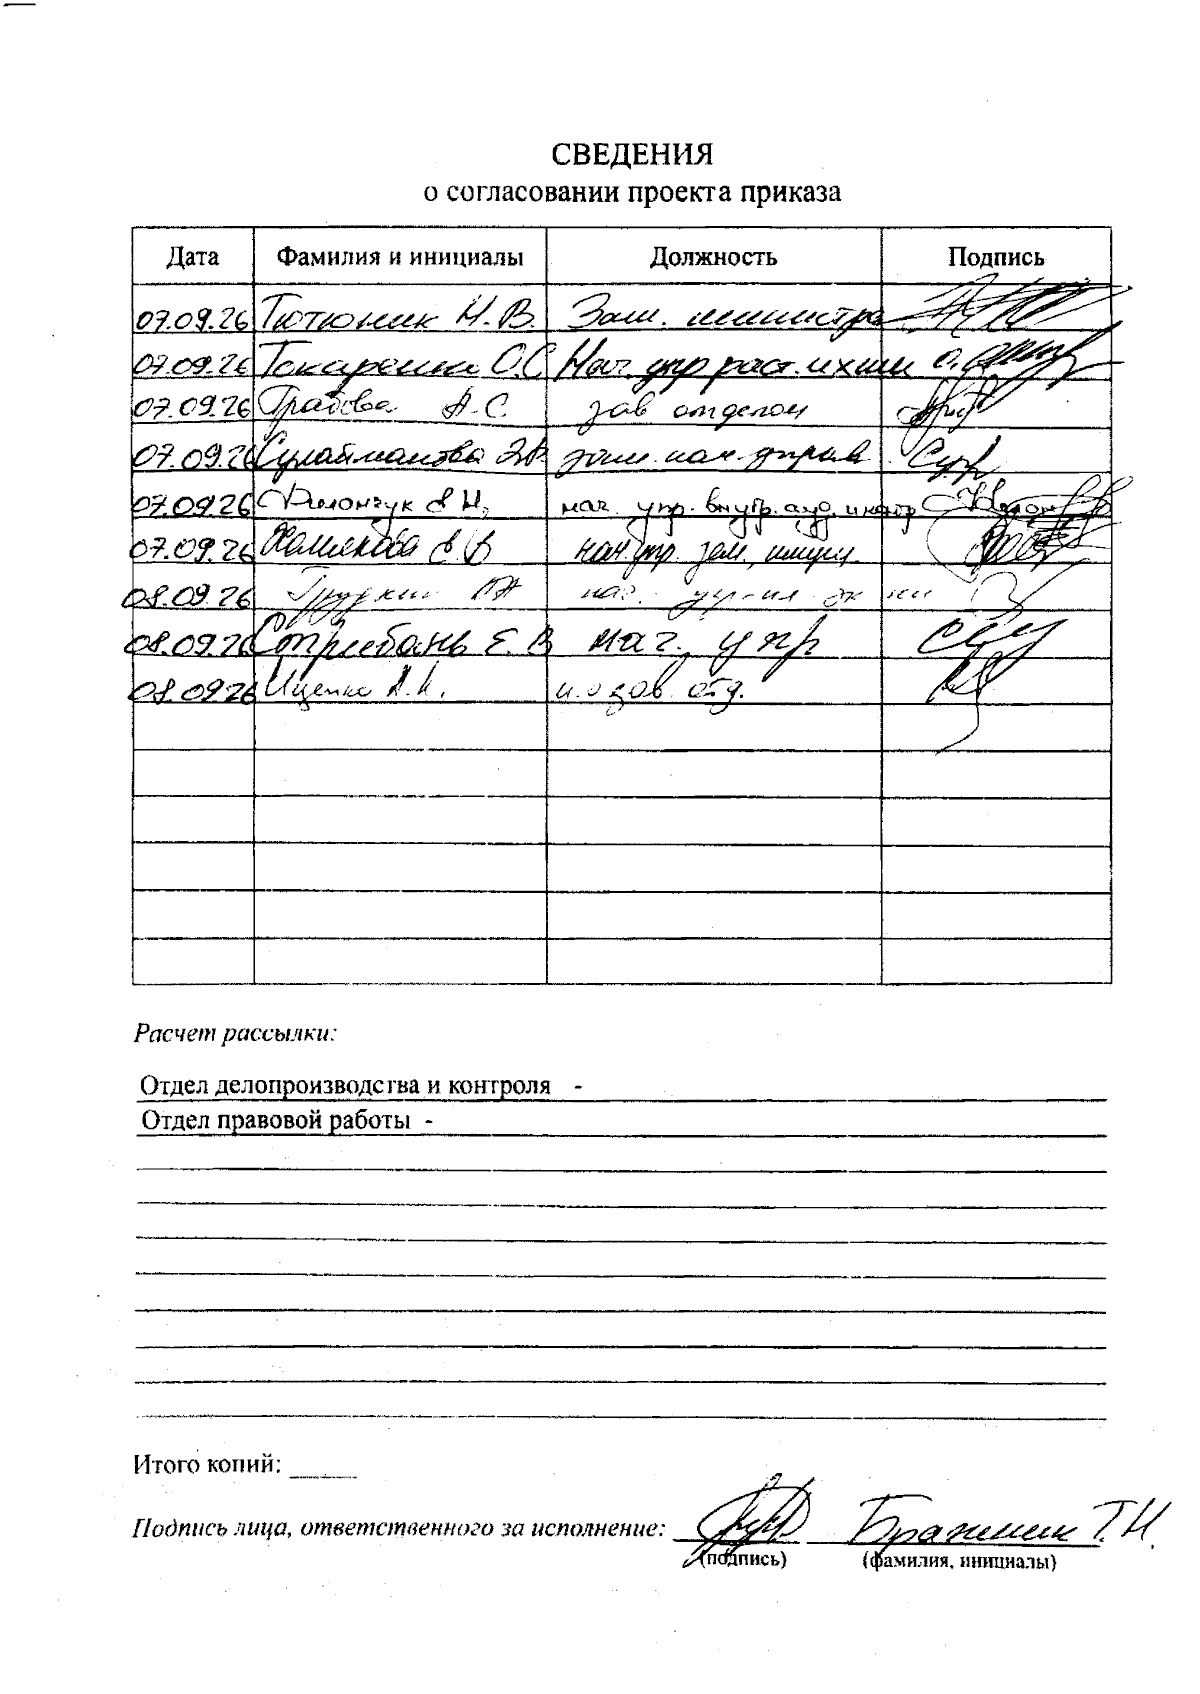 СВЕДЕНИЯ
о согласовании проекта приказа
Дата Фамилия и инициалы Должность Подпись
07.09.26 Тютюник Н.В. Зам. министра
07.09.26 Токаренко О.С Нач. упр раст. и хим
07.09.26 Грабова А.С. зав отделом
07.09.26 Сулайманова зам. нач. управ.
07.09.26 Филончук нач. упр. внутр. ауд. и контр
07.09.26 Хомякова Е В нач. упр. зем., имущ.
08.09.26 нач. упр-ия эк-ки
08.09.26 Стрebань Е. В нач. упр
08.09.26 Ищенко А.А. и.о зав. отд.
Расчет рассылки:
Отдел делопроизводства и контроля -
Отдел правовой работы -
Итого копий:
Подпись лица, ответственного за исполнение: Бражник Т.Н.
(подпись) (фамилия, инициалы)